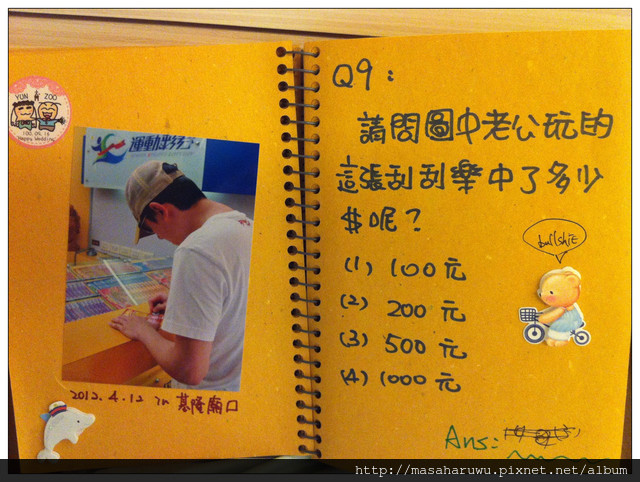 YUN
ZOO
100.09.18
Happy Wedding
運動彩券
2012.4.12 in 基隆廟口
Q9:
請問圖中老公玩的
這張刮刮樂中了多少
$呢?
(1) 100元
(2) 200元
(3) 500元
(4) 1000元
bullshit
Ans:
http://masaharuwu.pixnet.net/album